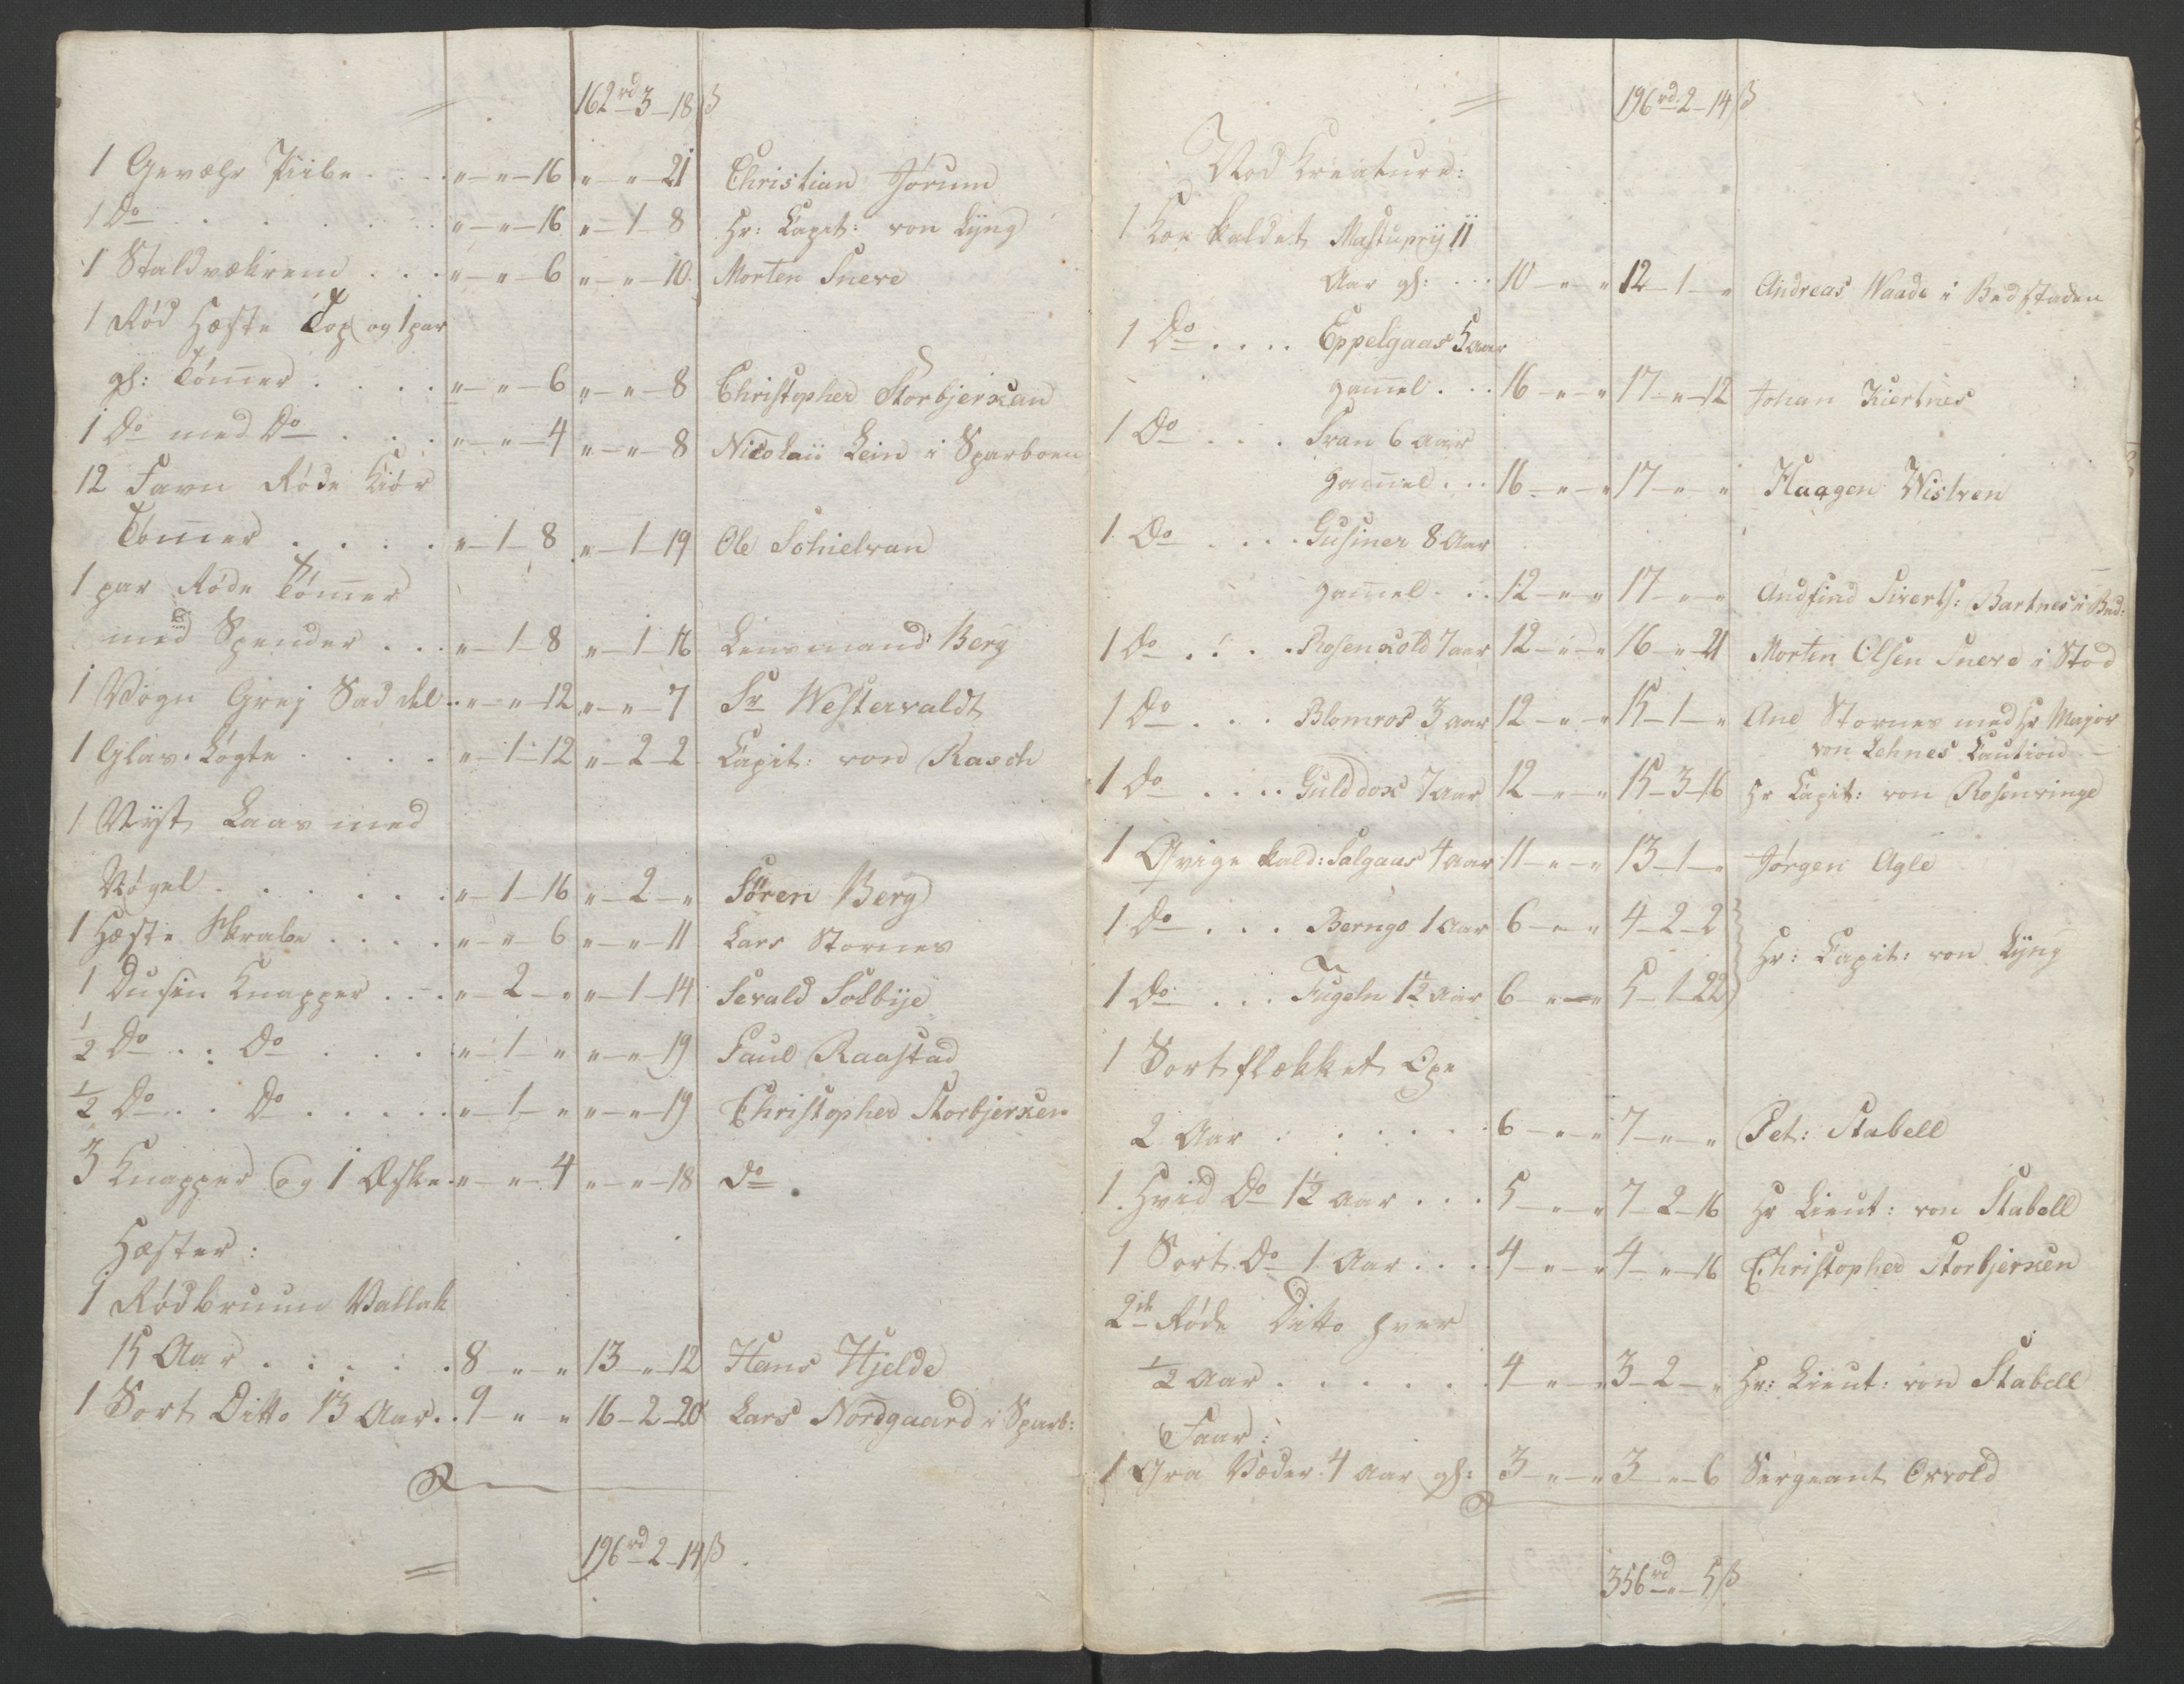 162rd 3 - 18 ß
1 Gevæhr Piibe . . . " - " - 16 " - " - 21 Christian Jørum
1 Do . . . . . " - " - 16 " - 1 - 8 Hr: Capit: von Lyng
1 Staldvækrem . . . " - " - 6 " - " - 10 Morten Sneve
1 Rød Hæste Top og 1 par
gl: Tømer . . . . " - " - 6 " - " - 8 Christopher Storbjerxan
1 Do med Do . . . " - " - 4 " - " - 8 Nicolaii Lein i Sparboen
12 Favn Røde Kiør
Tømer . . . . " - 1 - 8 " - 1 - 19 Ole Schielvan
1 par Røde Tømer
med Spender . . . " - 1 - 8 " - 1 - 16 Lensmand Berg
1 Vogn Grej Sadel . . " - " - 12 " - " - 7 Sr Westervaldt
1 Glas Løgte . . . . " - 1 - 12 " - 2 - 2 Capit: von Rasch
1 Nyt Laas med
Nøgel . . . . . " - 1 - 16 " - 2 - " Søren Berg
1 Hæste Skrabe . . . . " - " - 6 " - " - 11 Lars Stornes
1 Dusin Knapper . . . " - 2 - " " - 1 - 14 Sevald Solbye
1/2 Do . . Do . . . . " - 1 - " " - " - 19 Paul Raastad
1/2 Do . . Do . . . . . " - 1 - " " - " - 19 Christopher Storbjerxen
3 Knapper og 1 Æske . " - " - 4 " - " - 18 do
Hæster:
1 Rødbruun Vallak
15 Aar . . . . . 8 - " - " 13 - " - 12 Hans Hjelde
1 Sort Ditto 13 Aar . . 9 - " - " 16 - 2 - 20 Lars Nordgaard i Sparb:
196rd 2 - 14 ß
196rd 2 - 14 ß
Nød Kreature:
1 Koe kaldet 11
Aar gl: . . . 10 - " - " 12 - 1 - " Andreas Waade i Bedstaden
1 Do . . . . Eppelgaas 5 aar
gamel . . . 16 - " - " 17 - " - 12 Johan Kiertnes
1 Do . . . Svan 6 aar
gamel . . . 16 - " - " 17 - " - " Haagen Wistven
1 Do . . . . Gusiner 8 Aar
gamel . . . 12 - " - " 17 - " - " Andfind Siverts: Bartnes i Bed:
1 Do . . . . Rosenkold 7 aar 12 - " - " 16 - " - 21 Morten Olsen Sneve i Stod
1 Do . . . Blomros 3 aar 12 - " - " 15 - 1 - " Ane Stornes med Hr Major
von Lehnes Caution
1 Do . . . . Gulddox 7 Aar 12 - " - " 15 - 3 - 16 Hr Capit: von Rosenvinge
1 Qvige kald: Salgaas 4 aar 11 - " - " 13 - 1 - " Jørgen Agle
1 Do . . . Berngo 1 Aar 6 - " - " 4 - 2 - 2
Hr: Capit: von Lyng
1 Do . . . Fugeln 1 1/2 Aar 6 - " - " 5 - 1 - 22
1 Sort flækket Oxe
2 Aar . . . . . . 6 - " - " 7 - " - " Pet: Stabell
1 Hvid Do 1 1/2 Aar . . . 5 - " - " 7 - 2 - 16 Hr Lieut: von Stabell
1 Sort Do 1 Aar . . . . 4 - " - " 4 - " - 16 Christopher Storbjerxen
2de Røde Ditto hver
1/2 Aar . . . . . . 4 - " - " 3 - 2 - " Hr: Lieut: von Stabell
Faar:
1 Graa Væder 4 Aar gl: 3 - " - " 3 - " - 6 Sergeant Oxvold
356rd - " - 5 ß